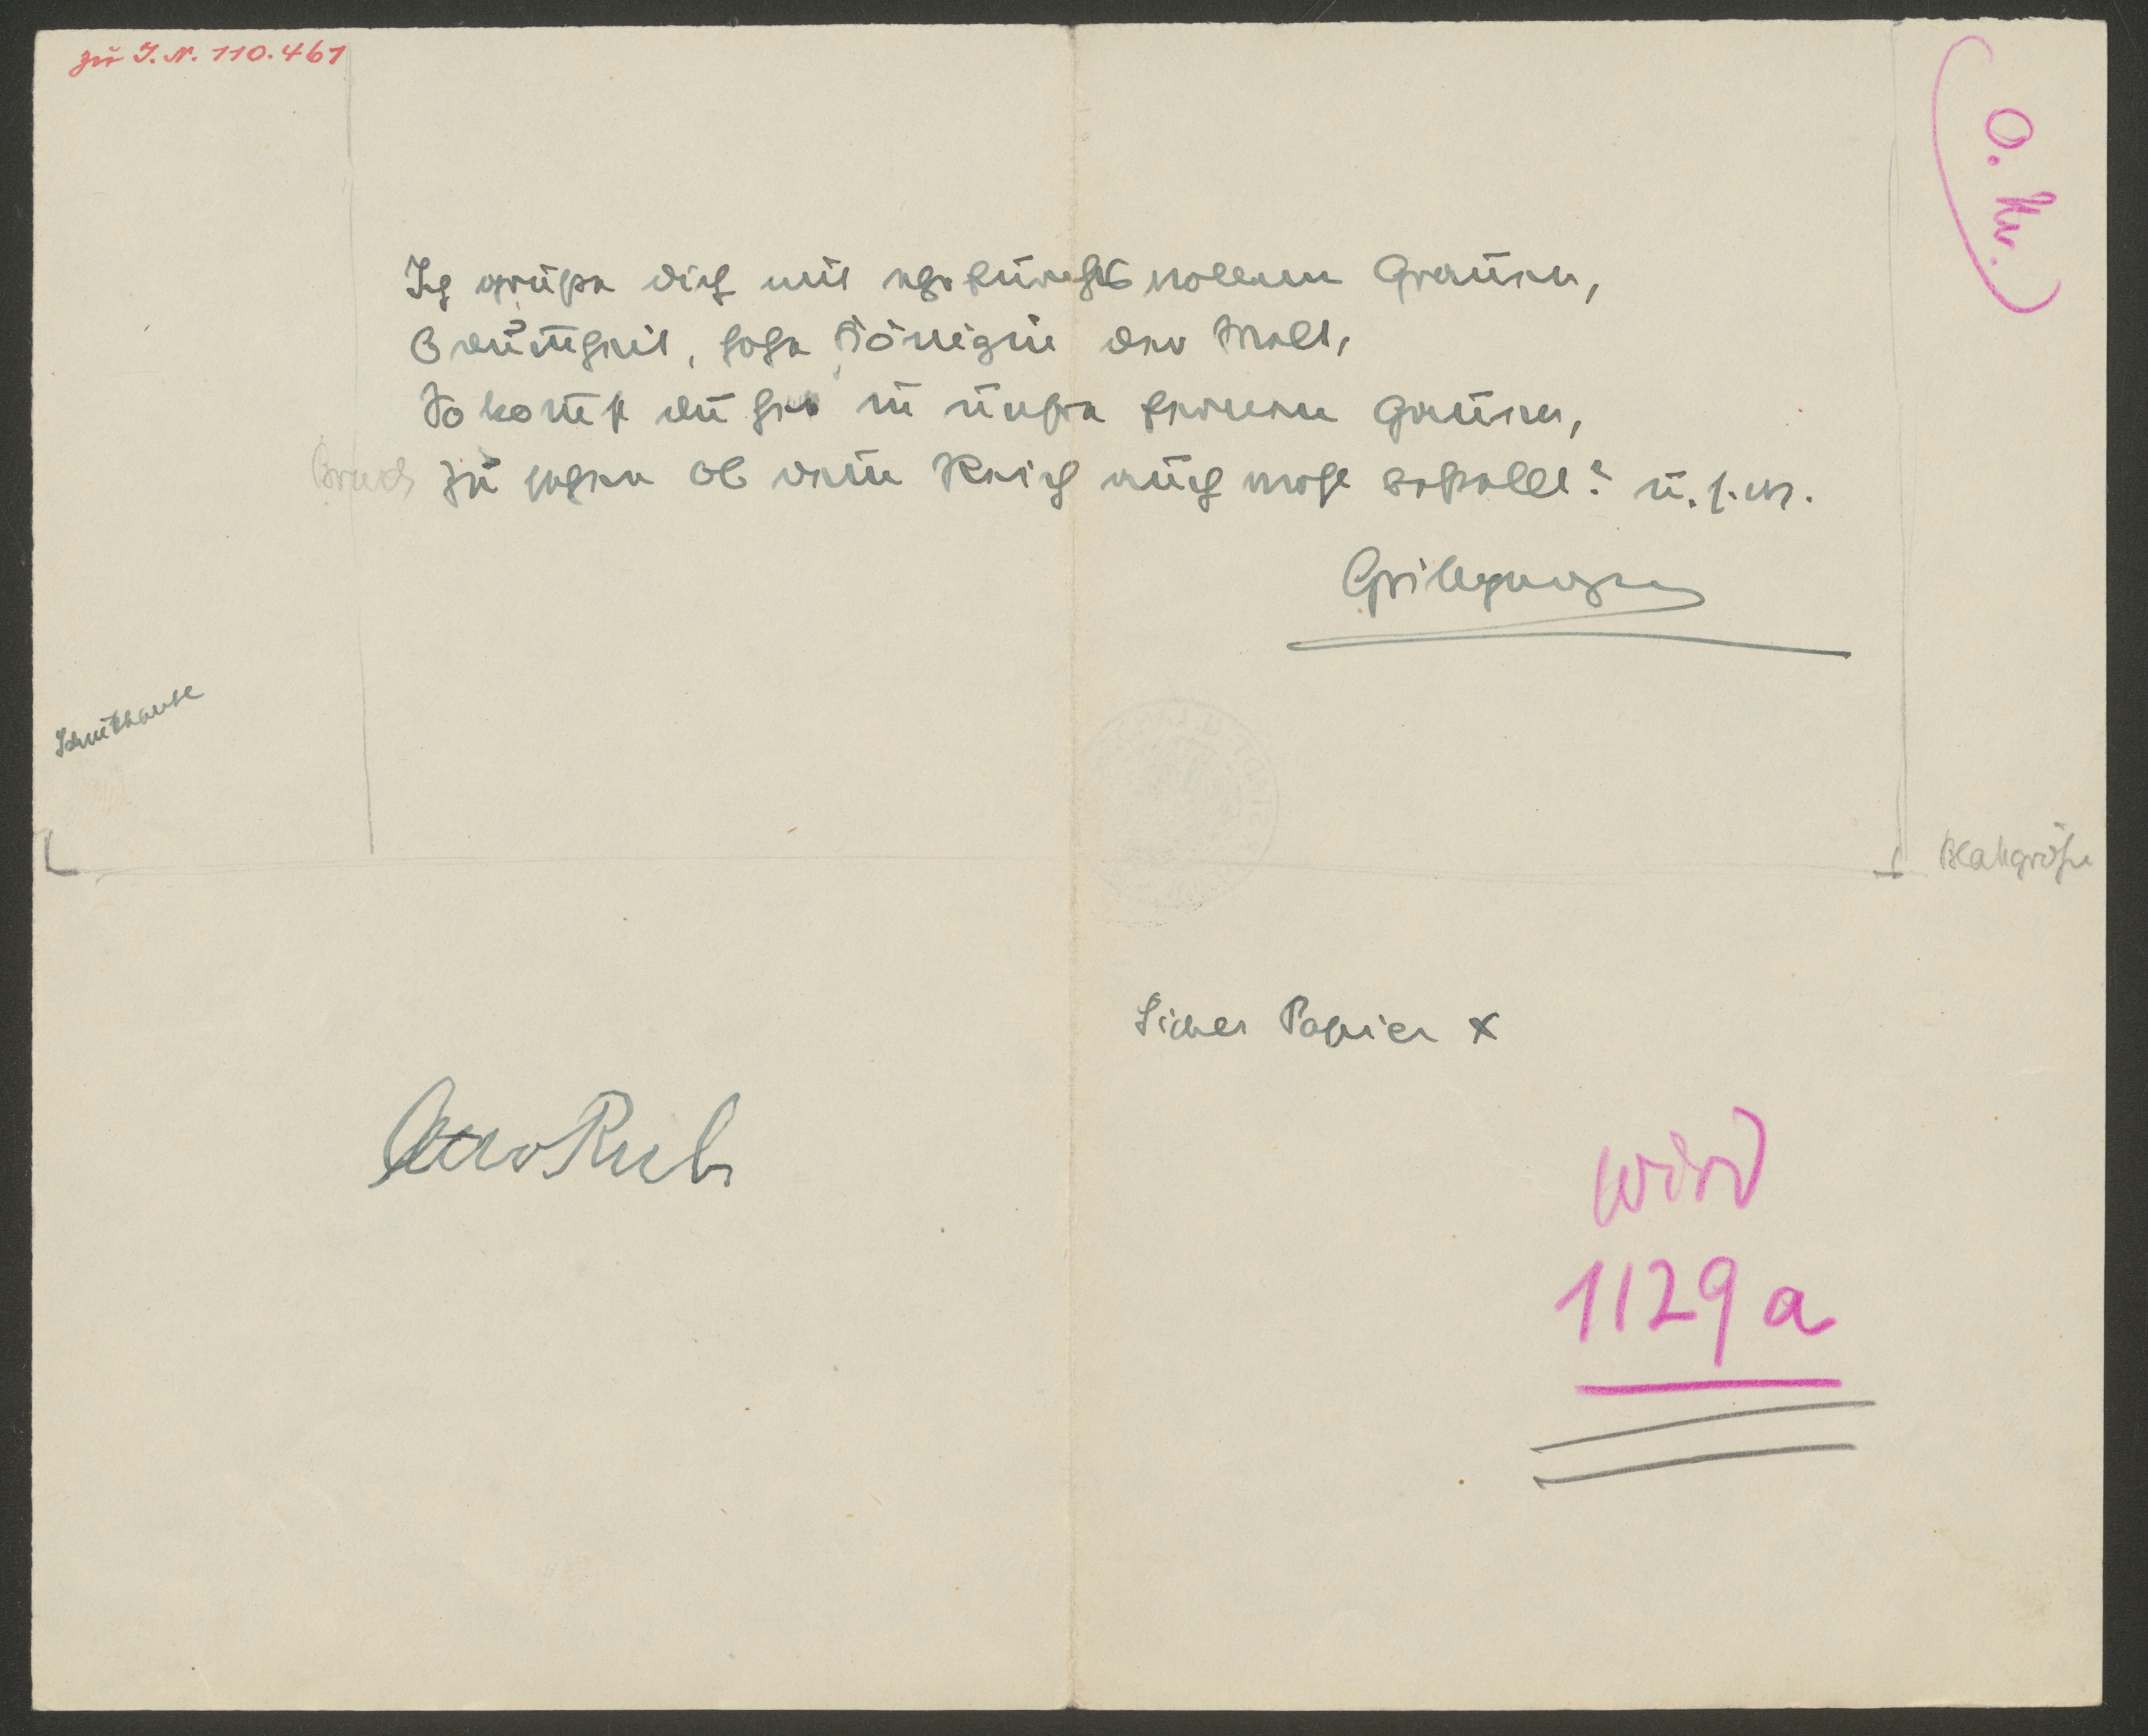 zu I. N. 110.461
O. K.
Ich grüße dich mit ehrfurchtsvollem Grauen,
O Dummheit, hohe Königin der Welt,
So komst du her in unsre fernen Gauen,
Bruch
Zu sehen ob dein Reich auch wohl bestellt? u. s. w.
Grillparzer
Schnittkante
Blattgröße
Sicher Papier x
Otto Rub
wird
1129 a